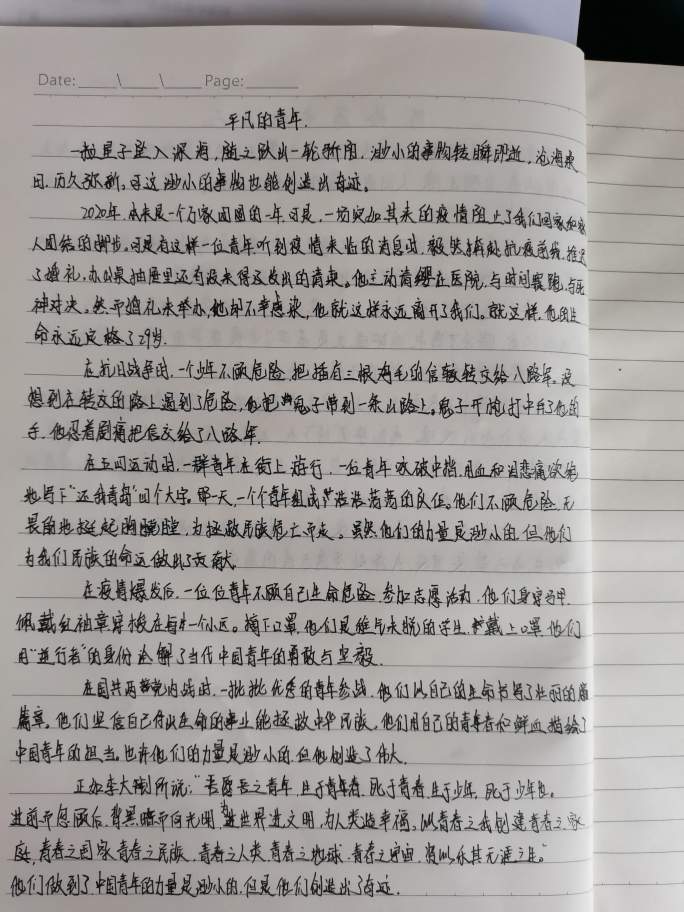 Date: _____\_____\_____ Page: _______
平凡的青年.
一粒星子坠入深海,随之跃出一轮新阳.渺小的事物转瞬即逝,沧海桑
田,历久弥新。可这渺小的事物也能创造出奇迹。
2020年,本来是一个万家团圆的一年.可是,一场突如其来的疫情阻止了我们回家和家
人团结的脚步。可是有这样一位青年听到疫情来临的消息时,毅然捐躯抗疫前线,推迟
了婚礼,办公桌抽屉里还有没来得及发出的请柬。他主动请缨在医院,与时间赛跑,与死
神对决。然而婚礼未举办,他却不幸感染,他就这样永远离开了我们。就这样,他的生
命永远定格了29岁.
在抗日战争时,一个少年不顾危险,把插有三根鸡毛的信转交给八路军。没
想到在转交的路上遇到了危险,他把鬼子带到一条山路上。鬼子开枪打中了他的
手,他忍着剧痛把信交给了八路军.
在五四运动时,一群青年在街上游行.一位青年咬破中指,用血和泪悲痛欲绝
地写下"还我青岛"四个大字。那一天,一个个青年组成了浩浩荡荡的队伍。他们不顾危险,无
畏的地挺起胸膛,为拯救民族危亡而走。虽然他们的力量是渺小的,但他们
为我们民族的命运做出了贡献.
在疫情爆发后,一位位青年不顾自己生命危险,参加志愿活动,他们身穿马甲,
佩戴红袖章穿梭在每一个小区。摘下口罩,他们是稚气未脱的学生,戴上口罩他们
用"逆行者"的身份诠释了当代中国青年的勇敢与坚毅.
在国共两党内战时,一批批优秀的青年参战,他们以自己的生命书写了壮丽的
篇章。他们坚信自己付出生命的事业能拯救中华民族。他们用自己的青春和鲜血描绘了
中国青年的担当。也许他们的力量是渺小的,但他创造了伟大.
正如李大钊所说:"吾愿吾之青年,生于青春,死于青春,生于少年,死于少年也。
进前而忽顾后,背黑暗而向光明,为世界进文明,为人类造幸福,以青春之我创建青春之家
庭,青春之国家,青春之民族,青春之人类,青春之地球,青春之宇宙,资以乐其无涯之生。"
他们做到了,中国青年的力量是渺小的,但是他们创造出了奇迹.